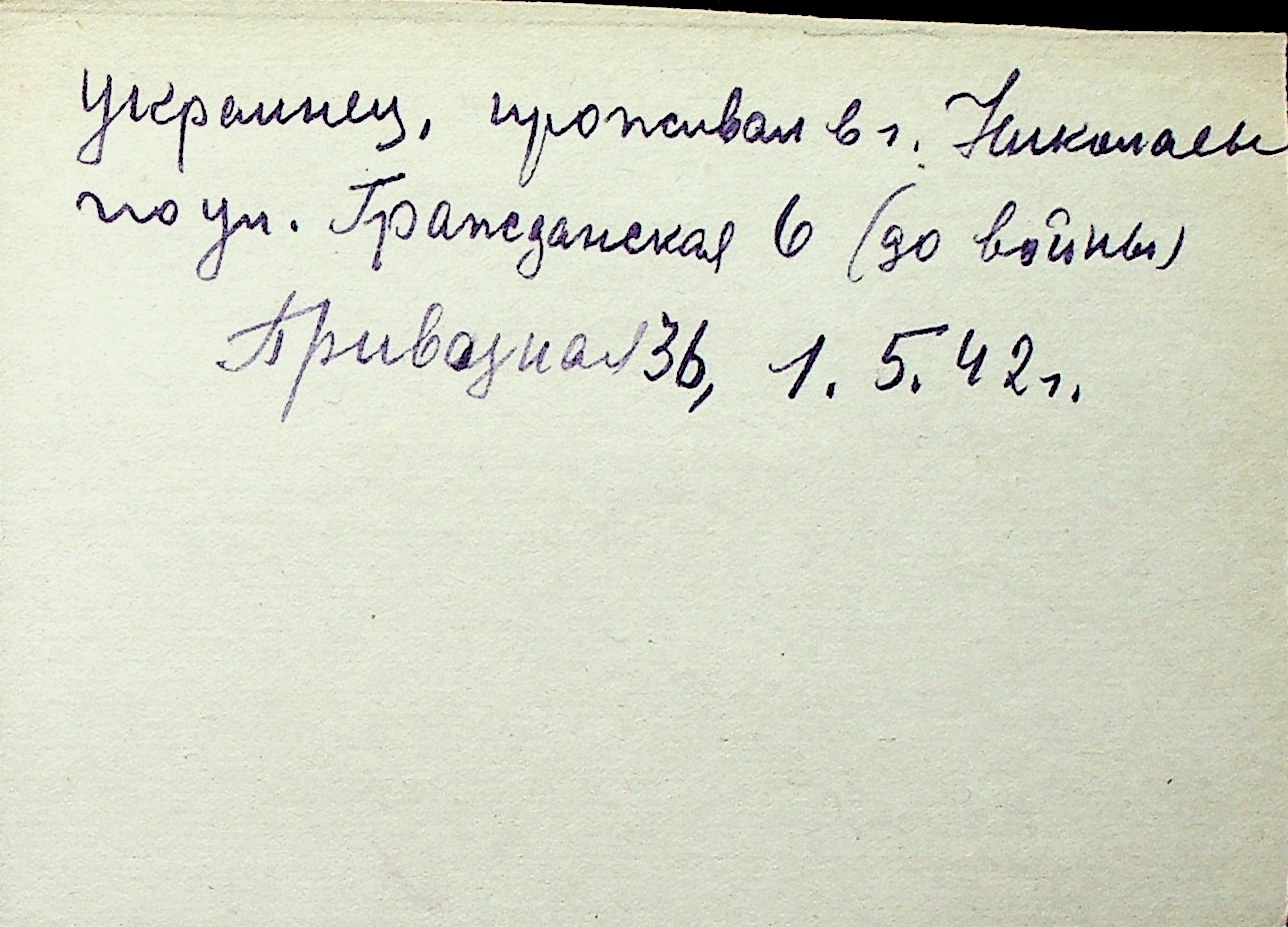 Украинец, проживал в г. Николаеве
по ул. Гражданская 6 (до войны)
Привозная 36, 1. 5. 42 г.